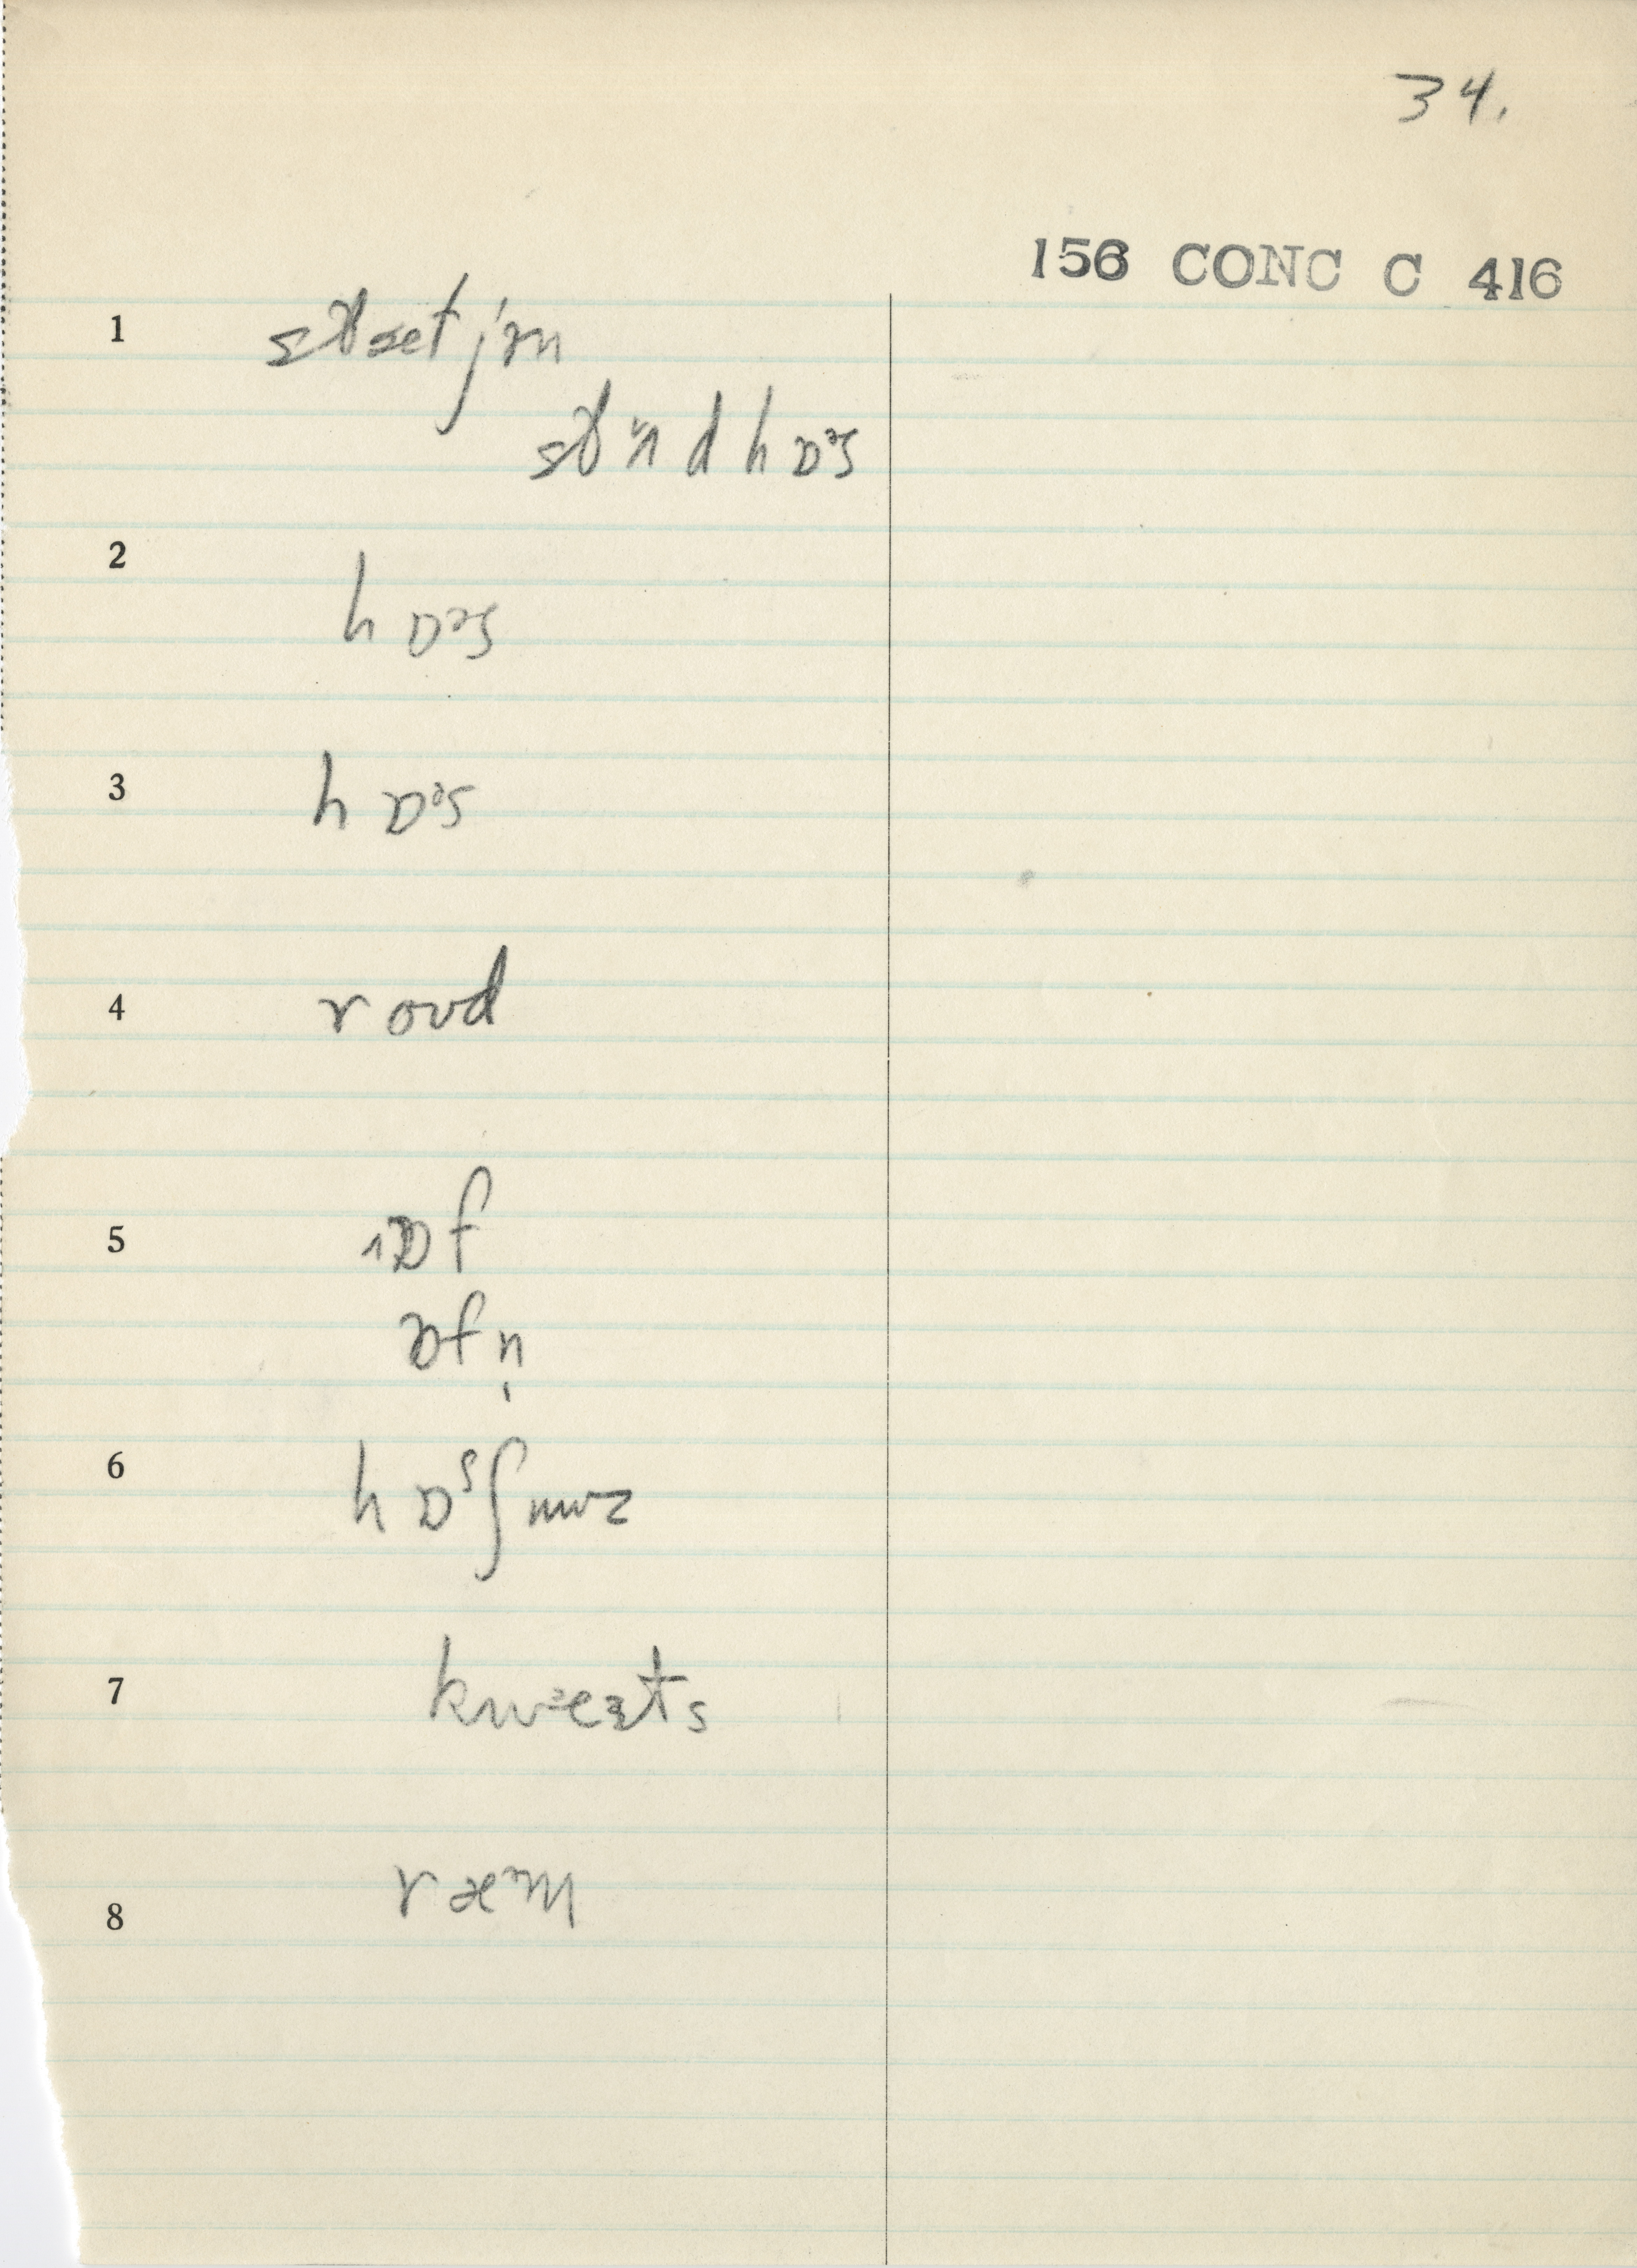 34.
156 CONC C 416
1 stæt jɪn
stʌd hɒᵊs
2 hɒᵊs
3 hɒᵊs
4 roʊd
5 ɒf
ɒfn̩
6 hɒˢʃuwz
7 kwᵊeɪts
8 ræᵊm